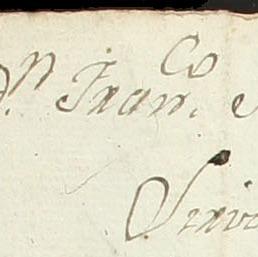 D.n Fran.co
Servi